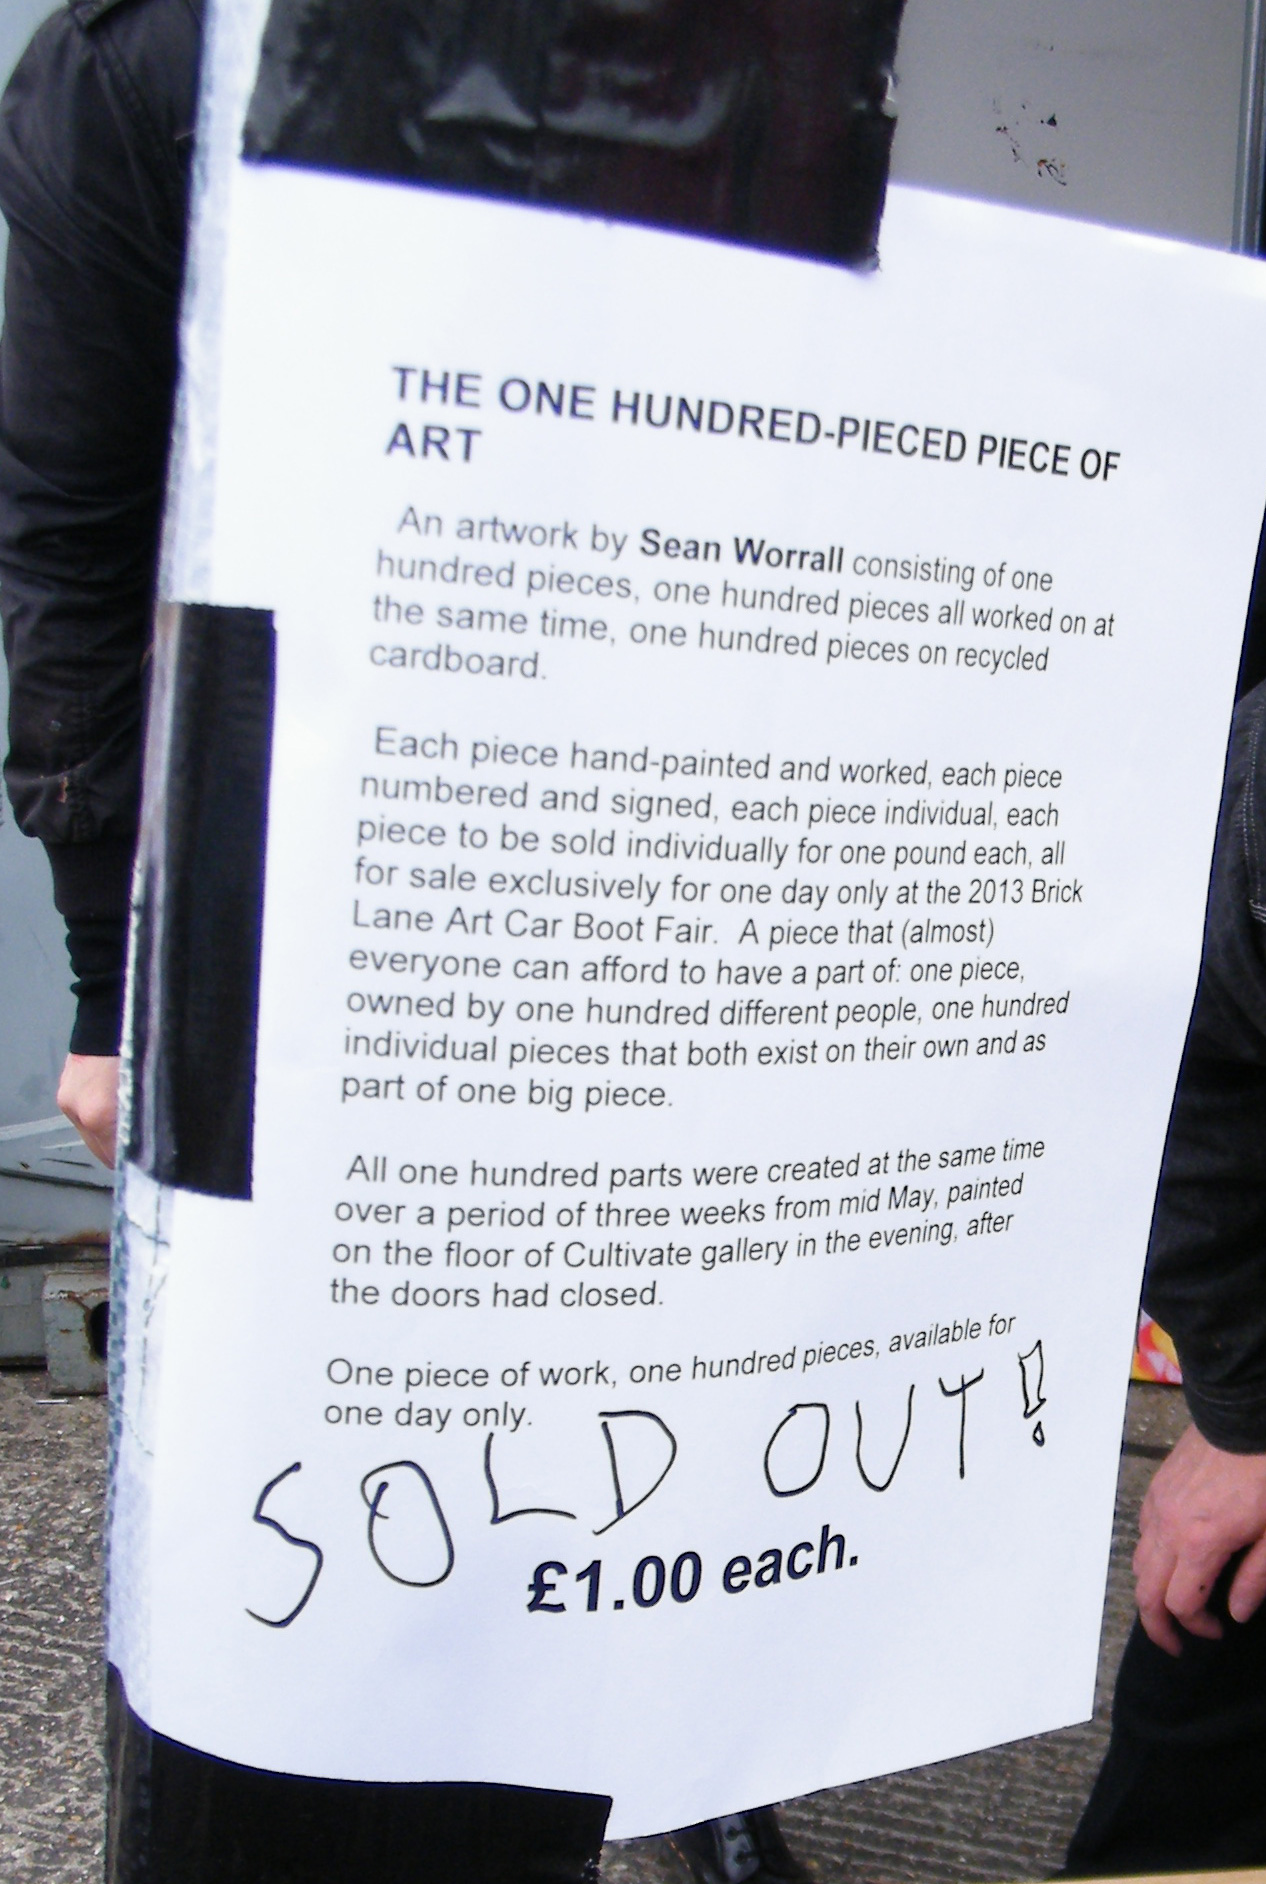 THE ONE HUNDRED-PIECED PIECE OF
ART
An artwork by Sean Worrall consisting of one
hundred pieces, one hundred pieces all worked on at
the same time, one hundred pieces on recycled
cardboard.
Each piece hand-painted and worked, each piece
numbered and signed, each piece individual, each
piece to be sold individually for one pound each, all
for sale exclusively for one day only at the 2013 Brick
Lane Art Car Boot Fair. A piece that (almost)
everyone can afford to have a part of: one piece,
owned by one hundred different people, one hundred
individual pieces that both exist on their own and as
part of one big piece.
All one hundred parts were created at the same time
over a period of three weeks from mid May, painted
on the floor of Cultivate gallery in the evening, after
the doors had closed.
One piece of work, one hundred pieces, available for
one day only.
SOLD OUT!
£1.00 each.